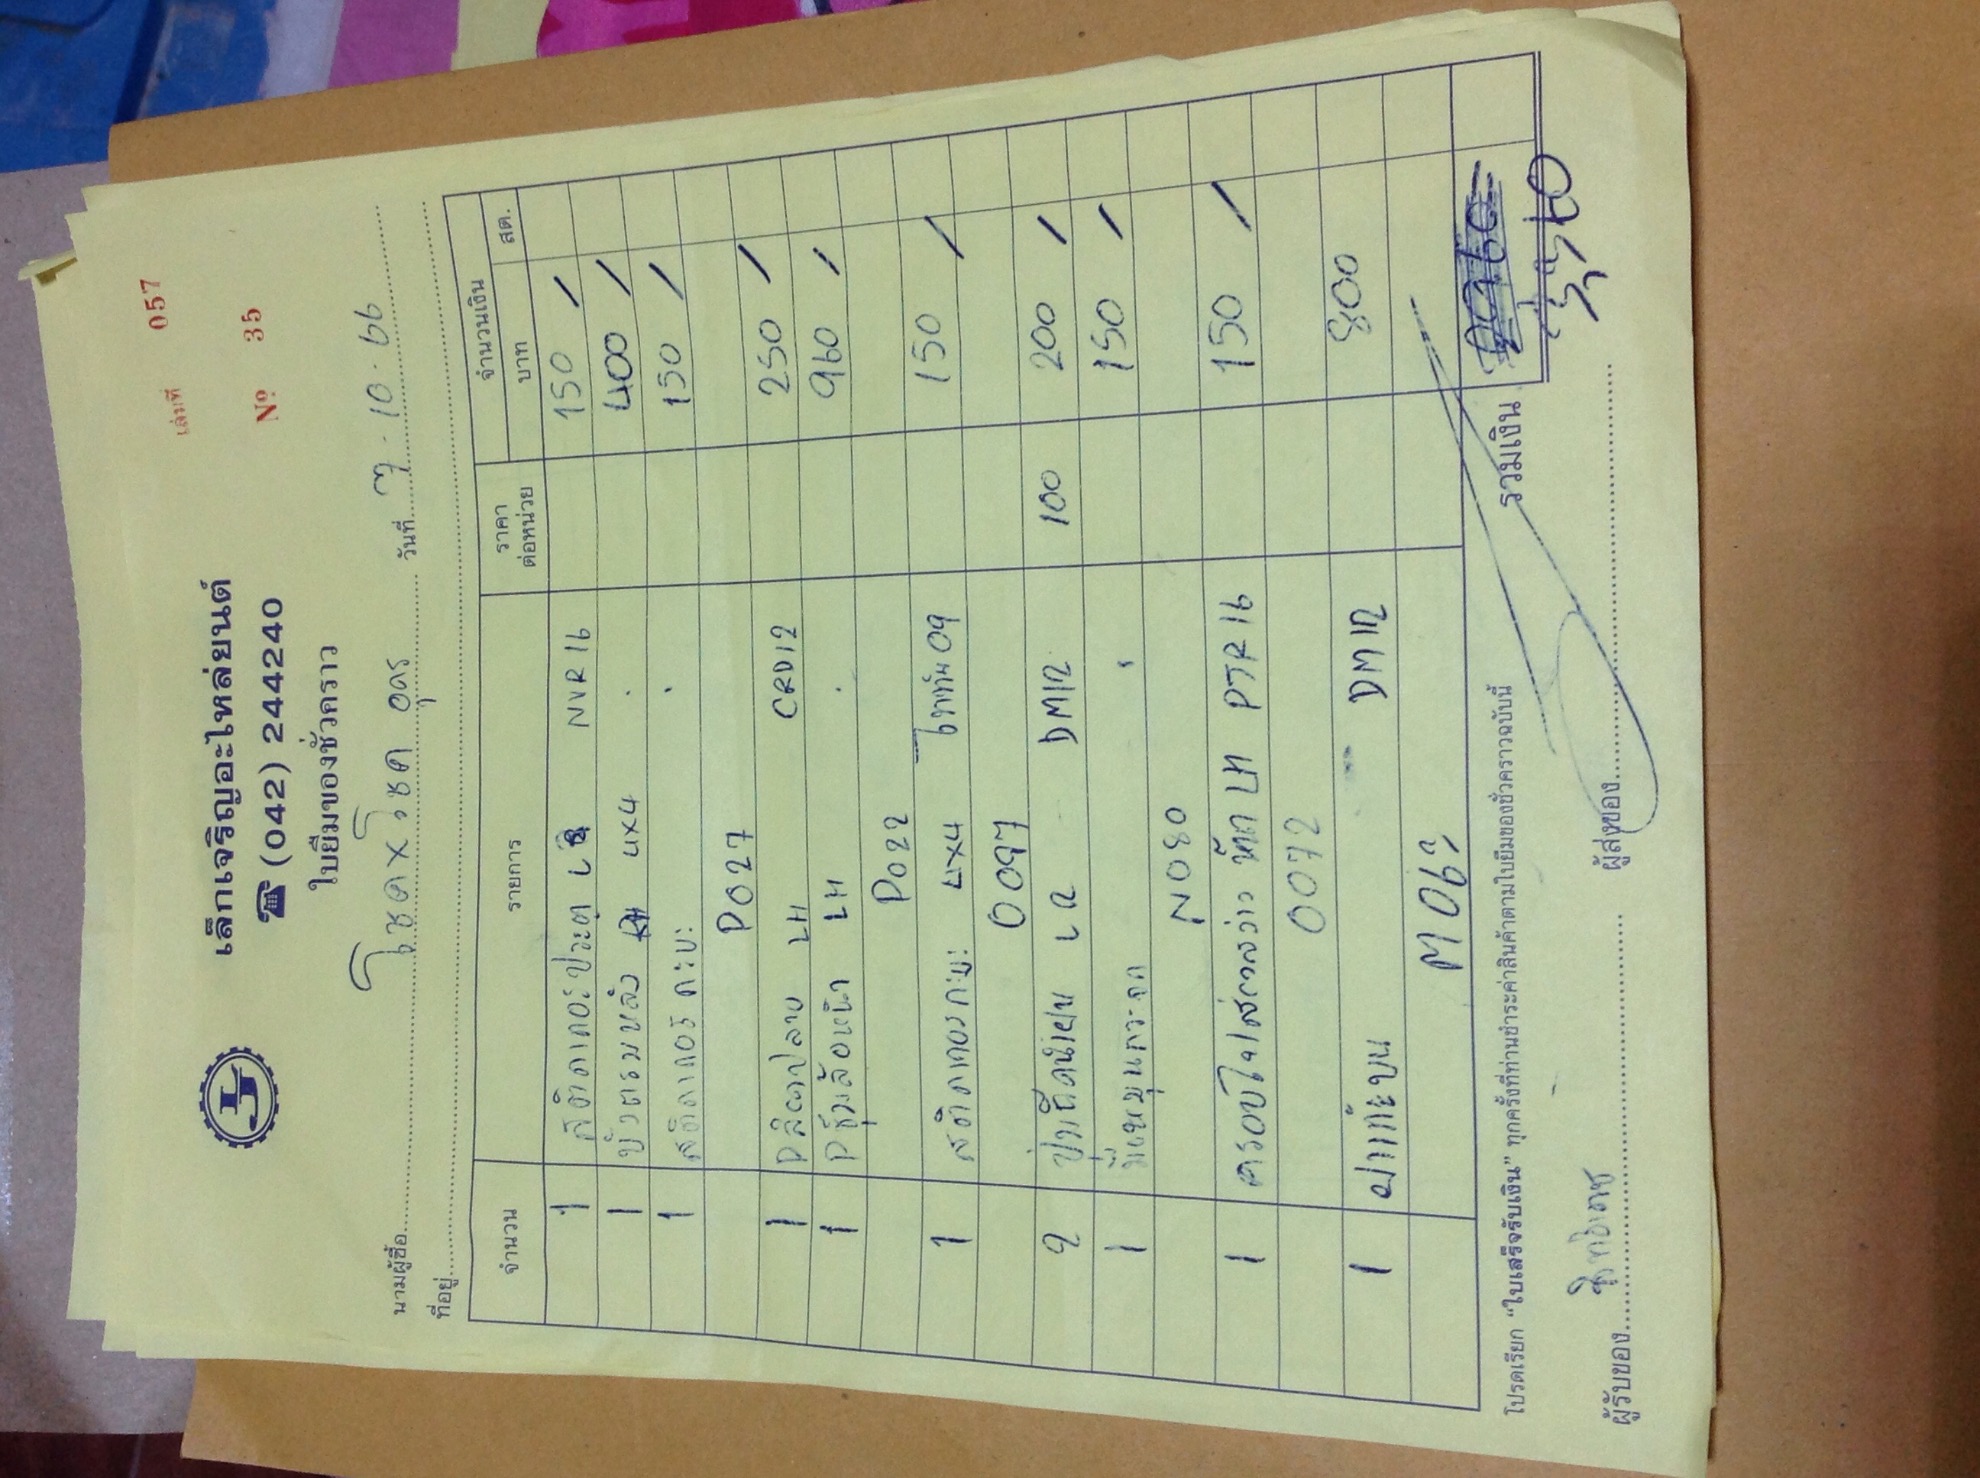 เล่มที่ 057
เล็กเจริญอะไหล่ยนต์
☎ (042) 244240
Nº 35
ใบยืมของชั่วคราว
นามผู้ซื้อ โชคxโชค อุดร วันที่ 7-10-66
ที่อยู่
จำนวน รายการ ราคาต่อหน่วย จำนวนเงิน
บาท สต.
1 สติกเกอร์ประตู NVR16 150 /
1 หลัง 4x4 400 /
1 สติกเกอร์ กะบะ 150 /
P027
1 LH CRD12 250 /
1 Pซุ้มล้อหน้า LH 960 /
P022
1 สติกเกอร์กะบะ 4x4 ไททัน09 150 /
0097
2 LR DM12 100 200 /
1 150 /
N080
1 ครอบไฟส่องสว่าง LH PTR16 150 /
0072
1 DM12 800
M062
โปรดเรียก “ใบเสร็จรับเงิน” ทุกครั้งที่ท่านชำระค่าสินค้าตามใบยืมของชั่วคราวฉบับนี้
รวมเงิน
ผู้รับของ ผู้ส่งของ